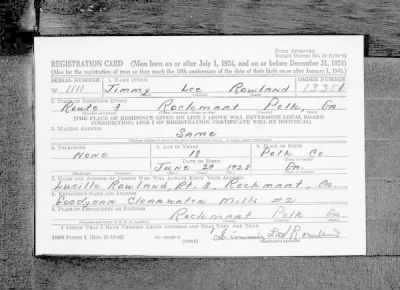 Form Approved.
REGISTRATION CARD (Men born on or after July 1, 1924, and on or before December 31, 1924)
(Also for the registration of men as they reach the 18th anniversary of the date of their birth on or after January 1, 1943.)
SERIAL NUMBER 1. NAME (Print) ORDER NUMBER
W 1111 Jimmy Lee Rowland
2. PLACE OF RESIDENCE (Print)
Route 3 Rockmart Polk Ga.
(THE PLACE OF RESIDENCE GIVEN ON LINE 2 ABOVE WILL DETERMINE LOCAL BOARD
JURISDICTION; LINE 2 OF REGISTRATION CERTIFICATE WILL BE IDENTICAL)
3. MAILING ADDRESS
Same
4. TELEPHONE 5. AGE IN YEARS 6. PLACE OF BIRTH
None 18 Polk Co
DATE OF BIRTH
June 29 Ga.
7. NAME AND ADDRESS OF PERSON WHO WILL ALWAYS KNOW YOUR ADDRESS
Lucille Rowland, Rt. 3, Rockmart, Ga.
8. EMPLOYER'S NAME AND ADDRESS
Goodyear Clearwater Mills #2
9. PLACE OF EMPLOYMENT OR BUSINESS
Rockmart Polk Ga.
I AFFIRM THAT I HAVE VERIFIED ABOVE ANSWERS AND THAT THEY ARE TRUE.
DSS Form 1 (OVER) Jimmie Lee Rowland